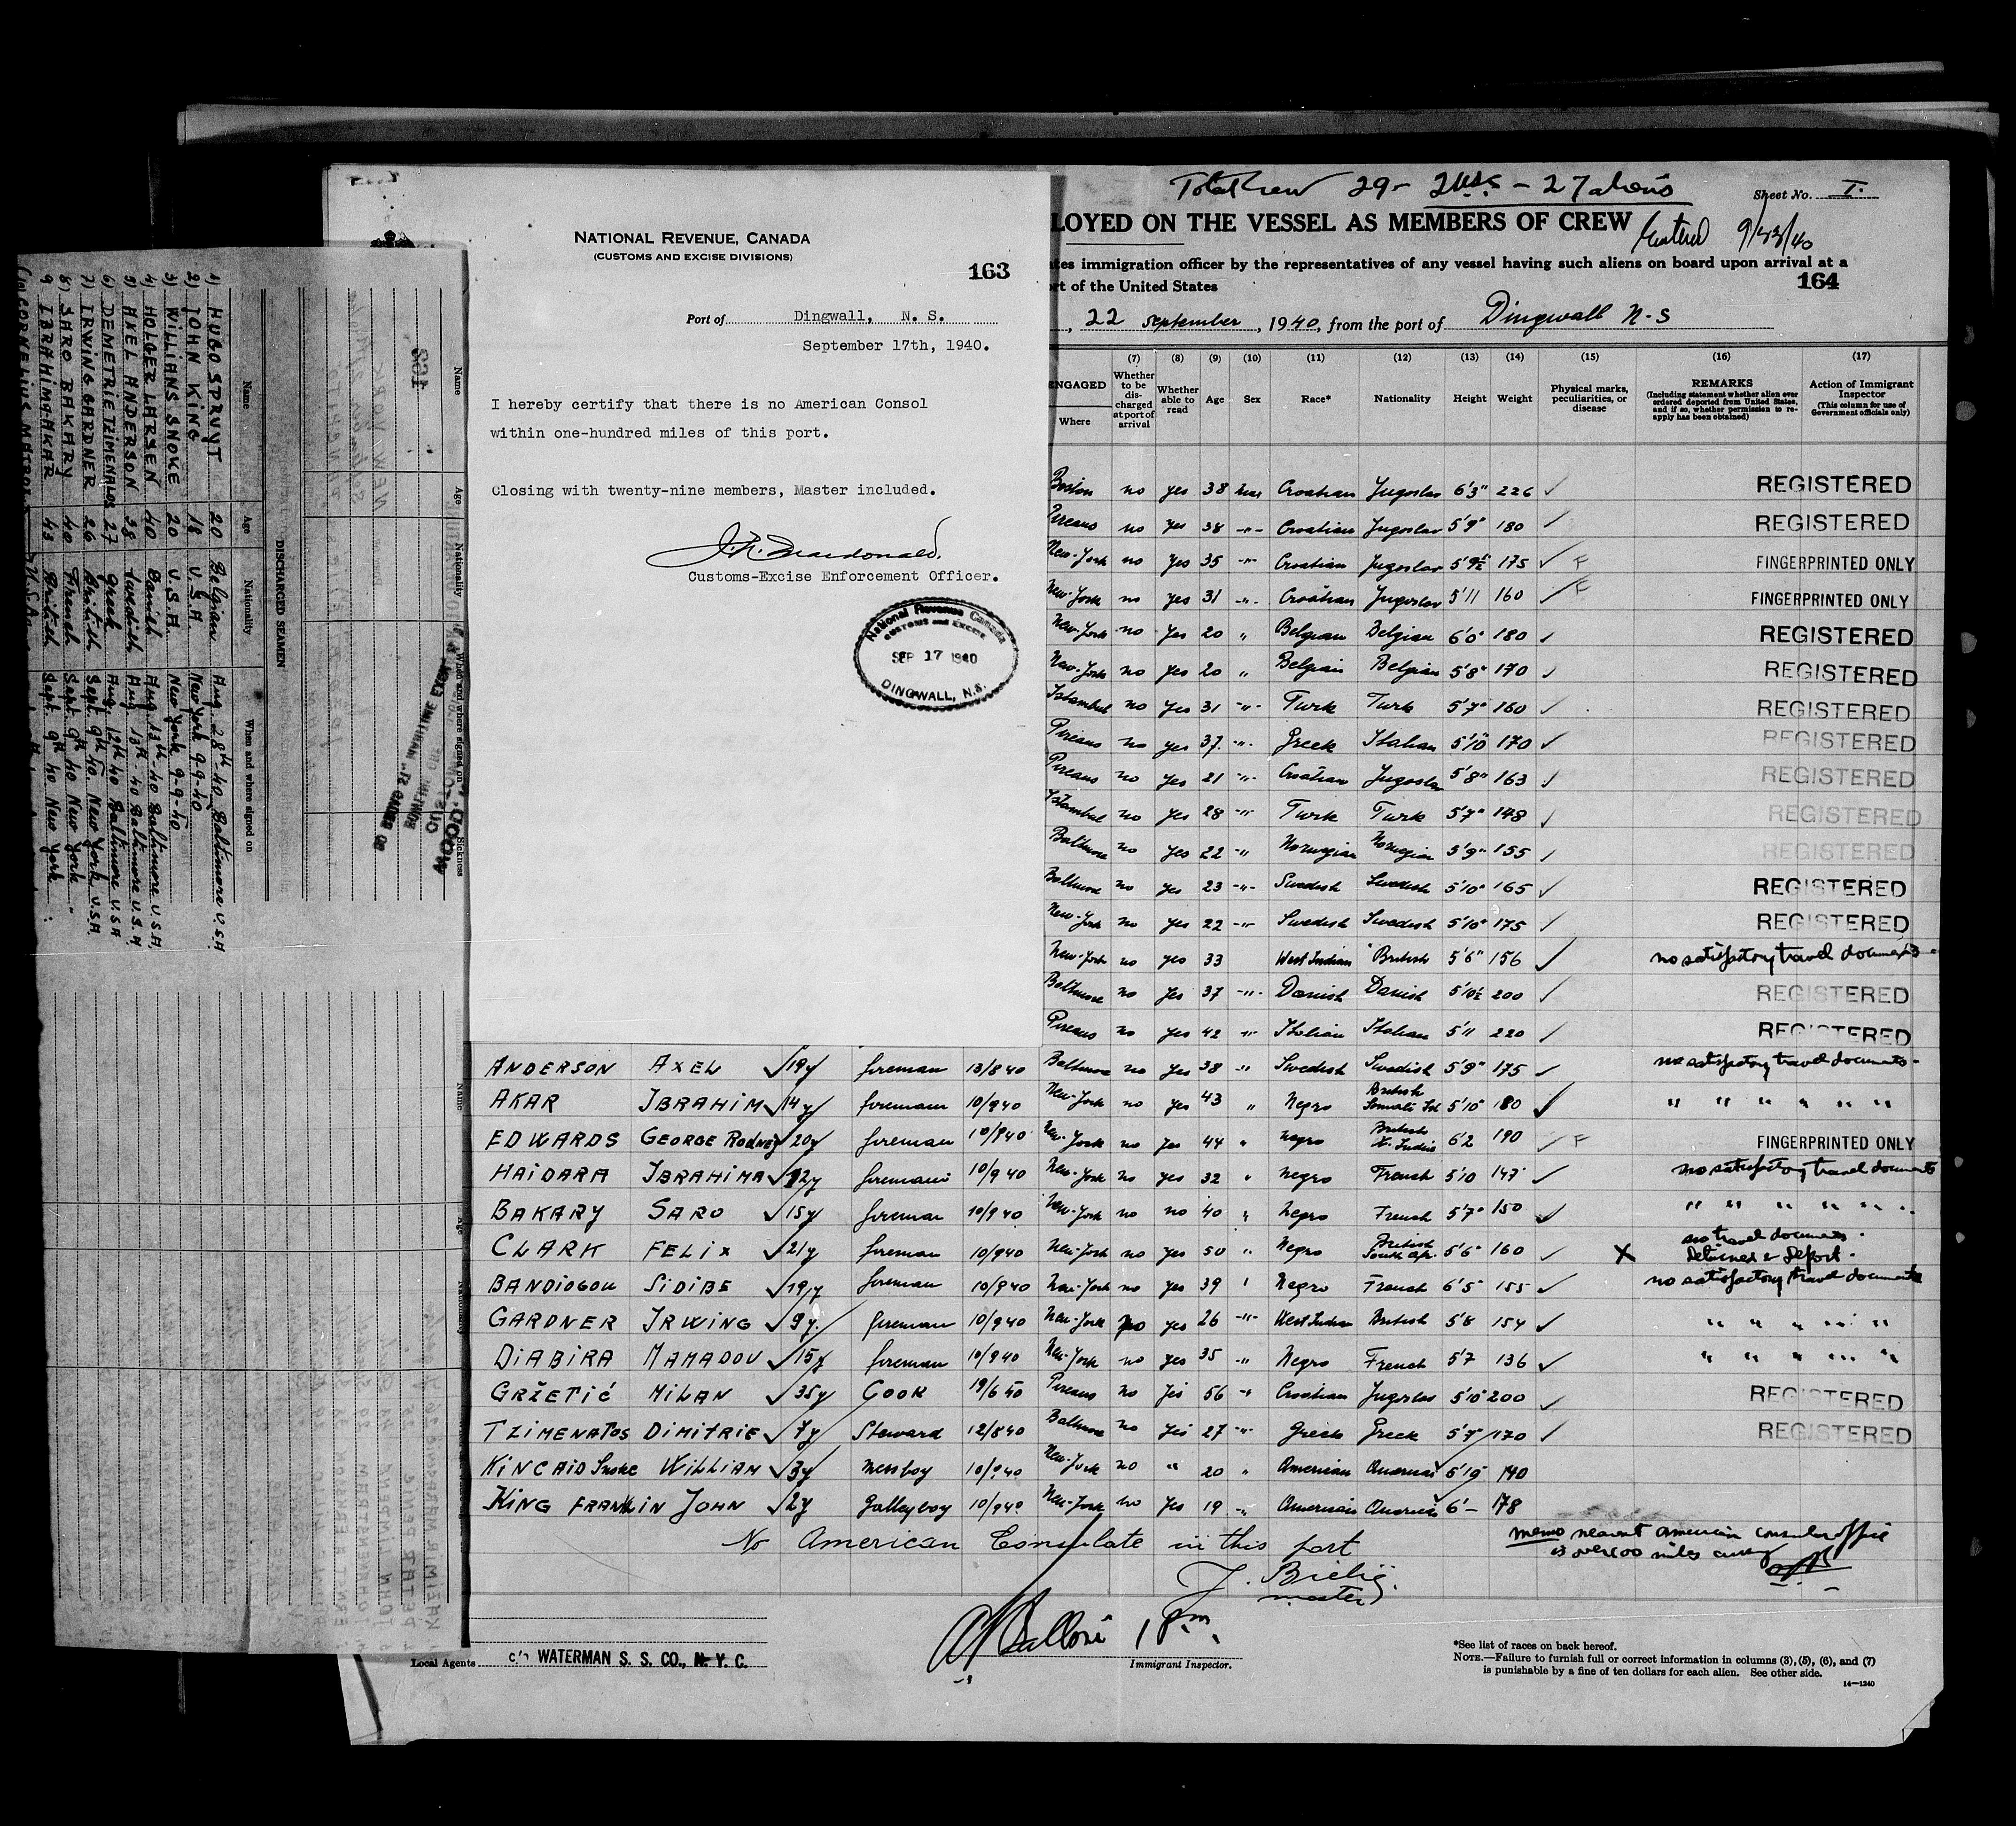 Total crew 29 - 2 USC - 27 aliens
Sheet No. I.
LOYED ON THE VESSEL AS MEMBERS OF CREW
9/23/40
tes immigration officer by the representatives of any vessel having such aliens on board upon arrival at a
rt of the United States
164
, 22 september, 1940, from the port of Dingwall N-S
NATIONAL REVENUE, CANADA
(CUSTOMS AND EXCISE DIVISIONS)
163
Port of Dingwall, N. S.
September 17th, 1940.
I hereby certify that there is no American Consol
within one-hundred miles of this port.
Closing with twenty-nine members, Master included.
J. R. Macdonald.
Customs-Excise Enforcement Officer.
National Revenue Canada
CUSTOMS and EXCISE
SEP 17 1940
DINGWALL, N.S.
DISCHARGED SEAMEN
Name Age Nationality When and where signed on
1) HUGO SPRUYT 20 Belgian Aug 28th 40 Baltimore U.S.A
2) JOHN KING 18 U.S.A New York 9-9-40
3) WILLIANS SNOKE 20 U.S.A. New York 9-9-40
4) HOLGER LARSEN 40 Danish Aug 13th 40 Baltimore U.S.A
5) AXEL ANDERSON 38 Swedish Aug 13th 40 Baltimore U.S.A
6) DEMETRIE TZIMENALOS 27 Greek Aug. 12th 40 Baltimore U.S.A
7) IRWING GARDNER 26 British Sept. 9th 40. New York U.S.A.
8) SARO BAKARY 40 French Sept. 9th 40 New York "
9 IBRAHIM AKAR 43 British Sept. 9th 40 New York
Name Age Nationality When and where signed on Sickness
ENGAGED
Where
(7) Whether to be discharged at port of arrival
(8) Whether able to read
(9) Age
(10) Sex
(11) Race*
(12) Nationality
(13) Height
(14) Weight
(15) Physical marks, peculiarities, or disease
(16) REMARKS (Including statement whether alien ever ordered deported from United States, and if so, whether permission to re-apply has been obtained)
(17) Action of Immigrant Inspector (This column for use of Government officials only)
Boston no yes 38 Croatian Jugoslav 6'3" 226 REGISTERED
Pireaus no yes 38 -"- Croatian Jugoslav 5'9" 180 REGISTERED
New-York no yes 35 -"- Croatian Jugoslav 5'9½ 175 F FINGERPRINTED ONLY
New-York no yes 31 -"- Croatian Jugoslav 5'11 160 F FINGERPRINTED ONLY
New-York no yes 20 " Belgian Belgian 6'0" 180 REGISTERED
New-York no yes 20 " Belgian Belgian 5'8" 170 REGISTERED
Istambul no yes 31 -"- Turk Turk 5'7" 160 REGISTERED
Pireaus no yes 37 -"- Greek Italian 5'10" 170 REGISTERED
Pireaus no yes 21 -"- Croatian Jugoslav 5'8" 163 REGISTERED
Istambul no yes 28 -"- Turk Turk 5'7" 148 REGISTERED
Baltimore no yes 22 -" Norwegian Norwegian 5'9" 155 REGISTERED
Baltimore no yes 23 -"- Swedish Swedish 5'10" 165 REGISTERED
New-York no yes 22 -"- Swedish Swedish 5'10" 175 REGISTERED
New-York no yes 33 West Indian British 5'6" 156 no satisfactory travel documents
Baltimore no yes 37 -"- Danish Danish 5'10½ 200 REGISTERED
Pireaus no yes 42 -"- Italian Italian 5'11 220 REGISTERED
ANDERSON AXEL 19y fireman 13/8 40 Baltimore no yes 38 " Swedish Swedish 5'9" 175 no satisfactory travel documents -
AKAR IBRAHIM 14y fireman 10/9 40 New-York no yes 43 " Negro British Somali 5'10" 180 " " " " " "
EDWARDS GEORGE RODNEY 20y fireman 10/9 40 New-York no yes 44 " Negro British W. Indies 6'2 190 F FINGERPRINTED ONLY
HAIDARA IBRAHIMA 12y fireman 10/9 40 New-York no yes 32 " Negro French 5'10 147 no satisfactory travel documents
BAKARY SARO 15y fireman 10/9 40 New-York no no 40 " Negro French 5'7" 150 " " " " " "
CLARK FELIX 21y fireman 10/9 40 New-York no yes 50 " Negro British South Afr. 5'6" 160 X no travel documents - Detained & Deport -
BANDIOGOU SIDIBE 19y fireman 10/9 40 New-York no yes 39 " Negro French 6'5 155 no satisfactory travel documents
GARDNER IRWING 9y. fireman 10/9 40 New-York no yes 26 -"- West Indian British 5'8 154 " " " " "
DIABIRA MAMADOU 15y fireman 10/9 40 New-York no yes 35 -" Negro French 5'7 136 " " " " "
GRŽETIĆ MILAN 35y Cook 19/6 40 Pireaus no yes 56 -" Croatian Jugoslav 5'10" 200 REGISTERED
TZIMENATOS DIMITRIE 7y Steward 12/8 40 Baltimore no yes 27 -"- Greek Greek 5'7 170 REGISTERED
KINCAID Snoke WILLIAM 3y Messboy 10/9 40 New-York no " 20 " American American 5'10 140
KING FRANKLIN JOHN 2y Galleyboy 10/9 40 New-York no yes 19 " American American 6'- 178
No American Consulate in this port
memo nearest american consular office
is over 100 miles away
J. Bielić.
master
1 P.m.
Immigrant Inspector.
Local Agents c/o WATERMAN S. S. CO., N. Y. C.
*See list of races on back hereof.
NOTE.—Failure to furnish full or correct information in columns (3), (5), (6), and (7)
is punishable by a fine of ten dollars for each alien. See other side.
14—1240